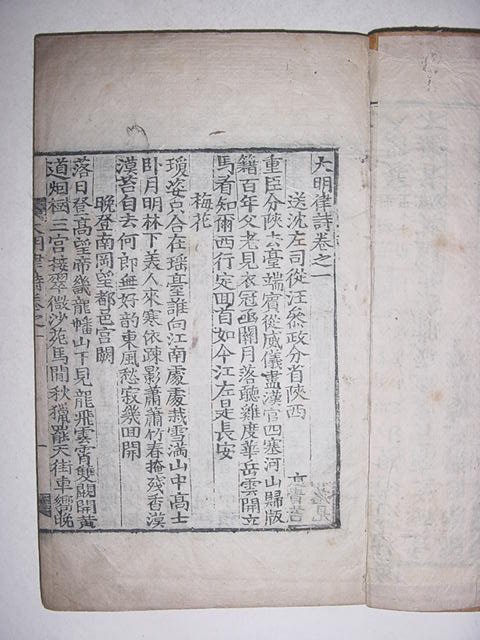 大明律詩卷之一
送沈左司從汪叅政分首陝西
重臣分陝去臺端賓從威儀盡漢官四塞河山歸版
籍百年父老見衣冠凾關月落聽雞度華岳雲開立
馬看知爾西行定回首如今江左是長安
梅花
瓊姿只合在瑶臺誰向江南處處栽雪滿山中高士
卧月明林下美人來寒依疎影蕭蕭竹春掩殘香漠
漠苔自去何郎無好韵東風愁寂幾回開
晚登南岡望都邑宮闕
落日登高望帝畿龍蟠山下見龍飛雲霄雙闕開黃
道烟樹三宮接翠微沙苑馬閒秋獵罷天街車晚
大明律詩卷之一